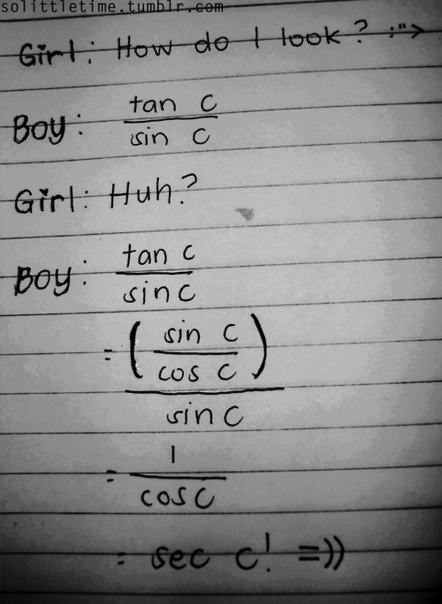 solittletime.tumblr.com
Girl: How do I look? :">
Boy: tan C
sin C
Girl: Huh?
Boy: tan C
sin C
= (sin C
cos C)
sin C
= 1
cos C
= sec c! =))